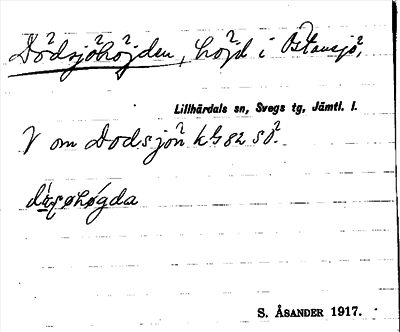 Dödsjöhöjden, höjd i Östansjö,
Lillhärdals sn, Svegs tg, Jämtl. l.
V om Dodsjön kG 82 sö.
S. ÅSANDER 1917.